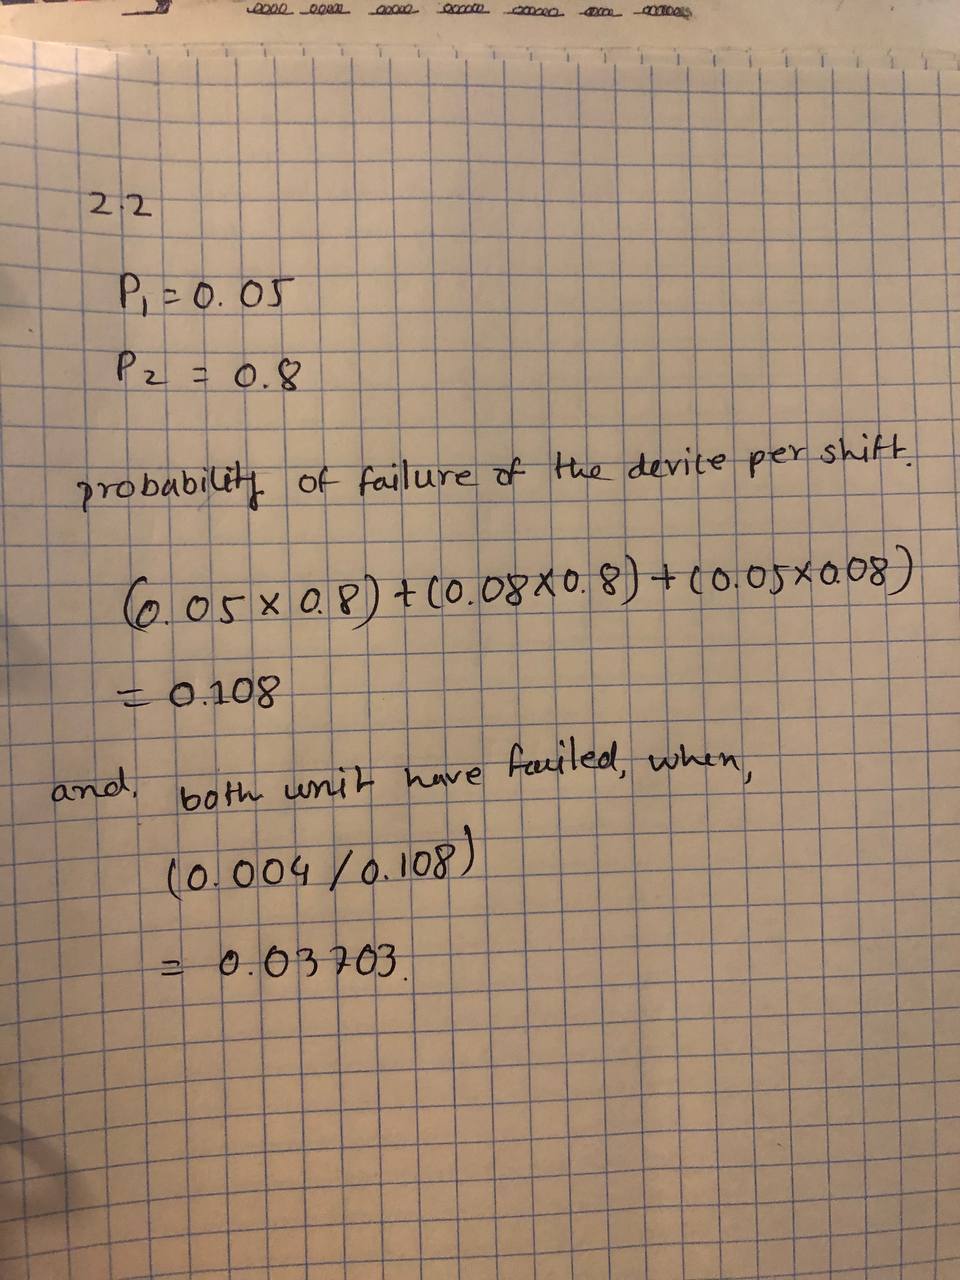 2.2
P₁ = 0.05
P₂ = 0.8
probability of failure of the device per shift.
(0.05 × 0.8) + (0.08 × 0.8) + (0.05 × 0.08)
= 0.108
and, both unit have failed, when,
(0.004 / 0.108)
= 0.03703.